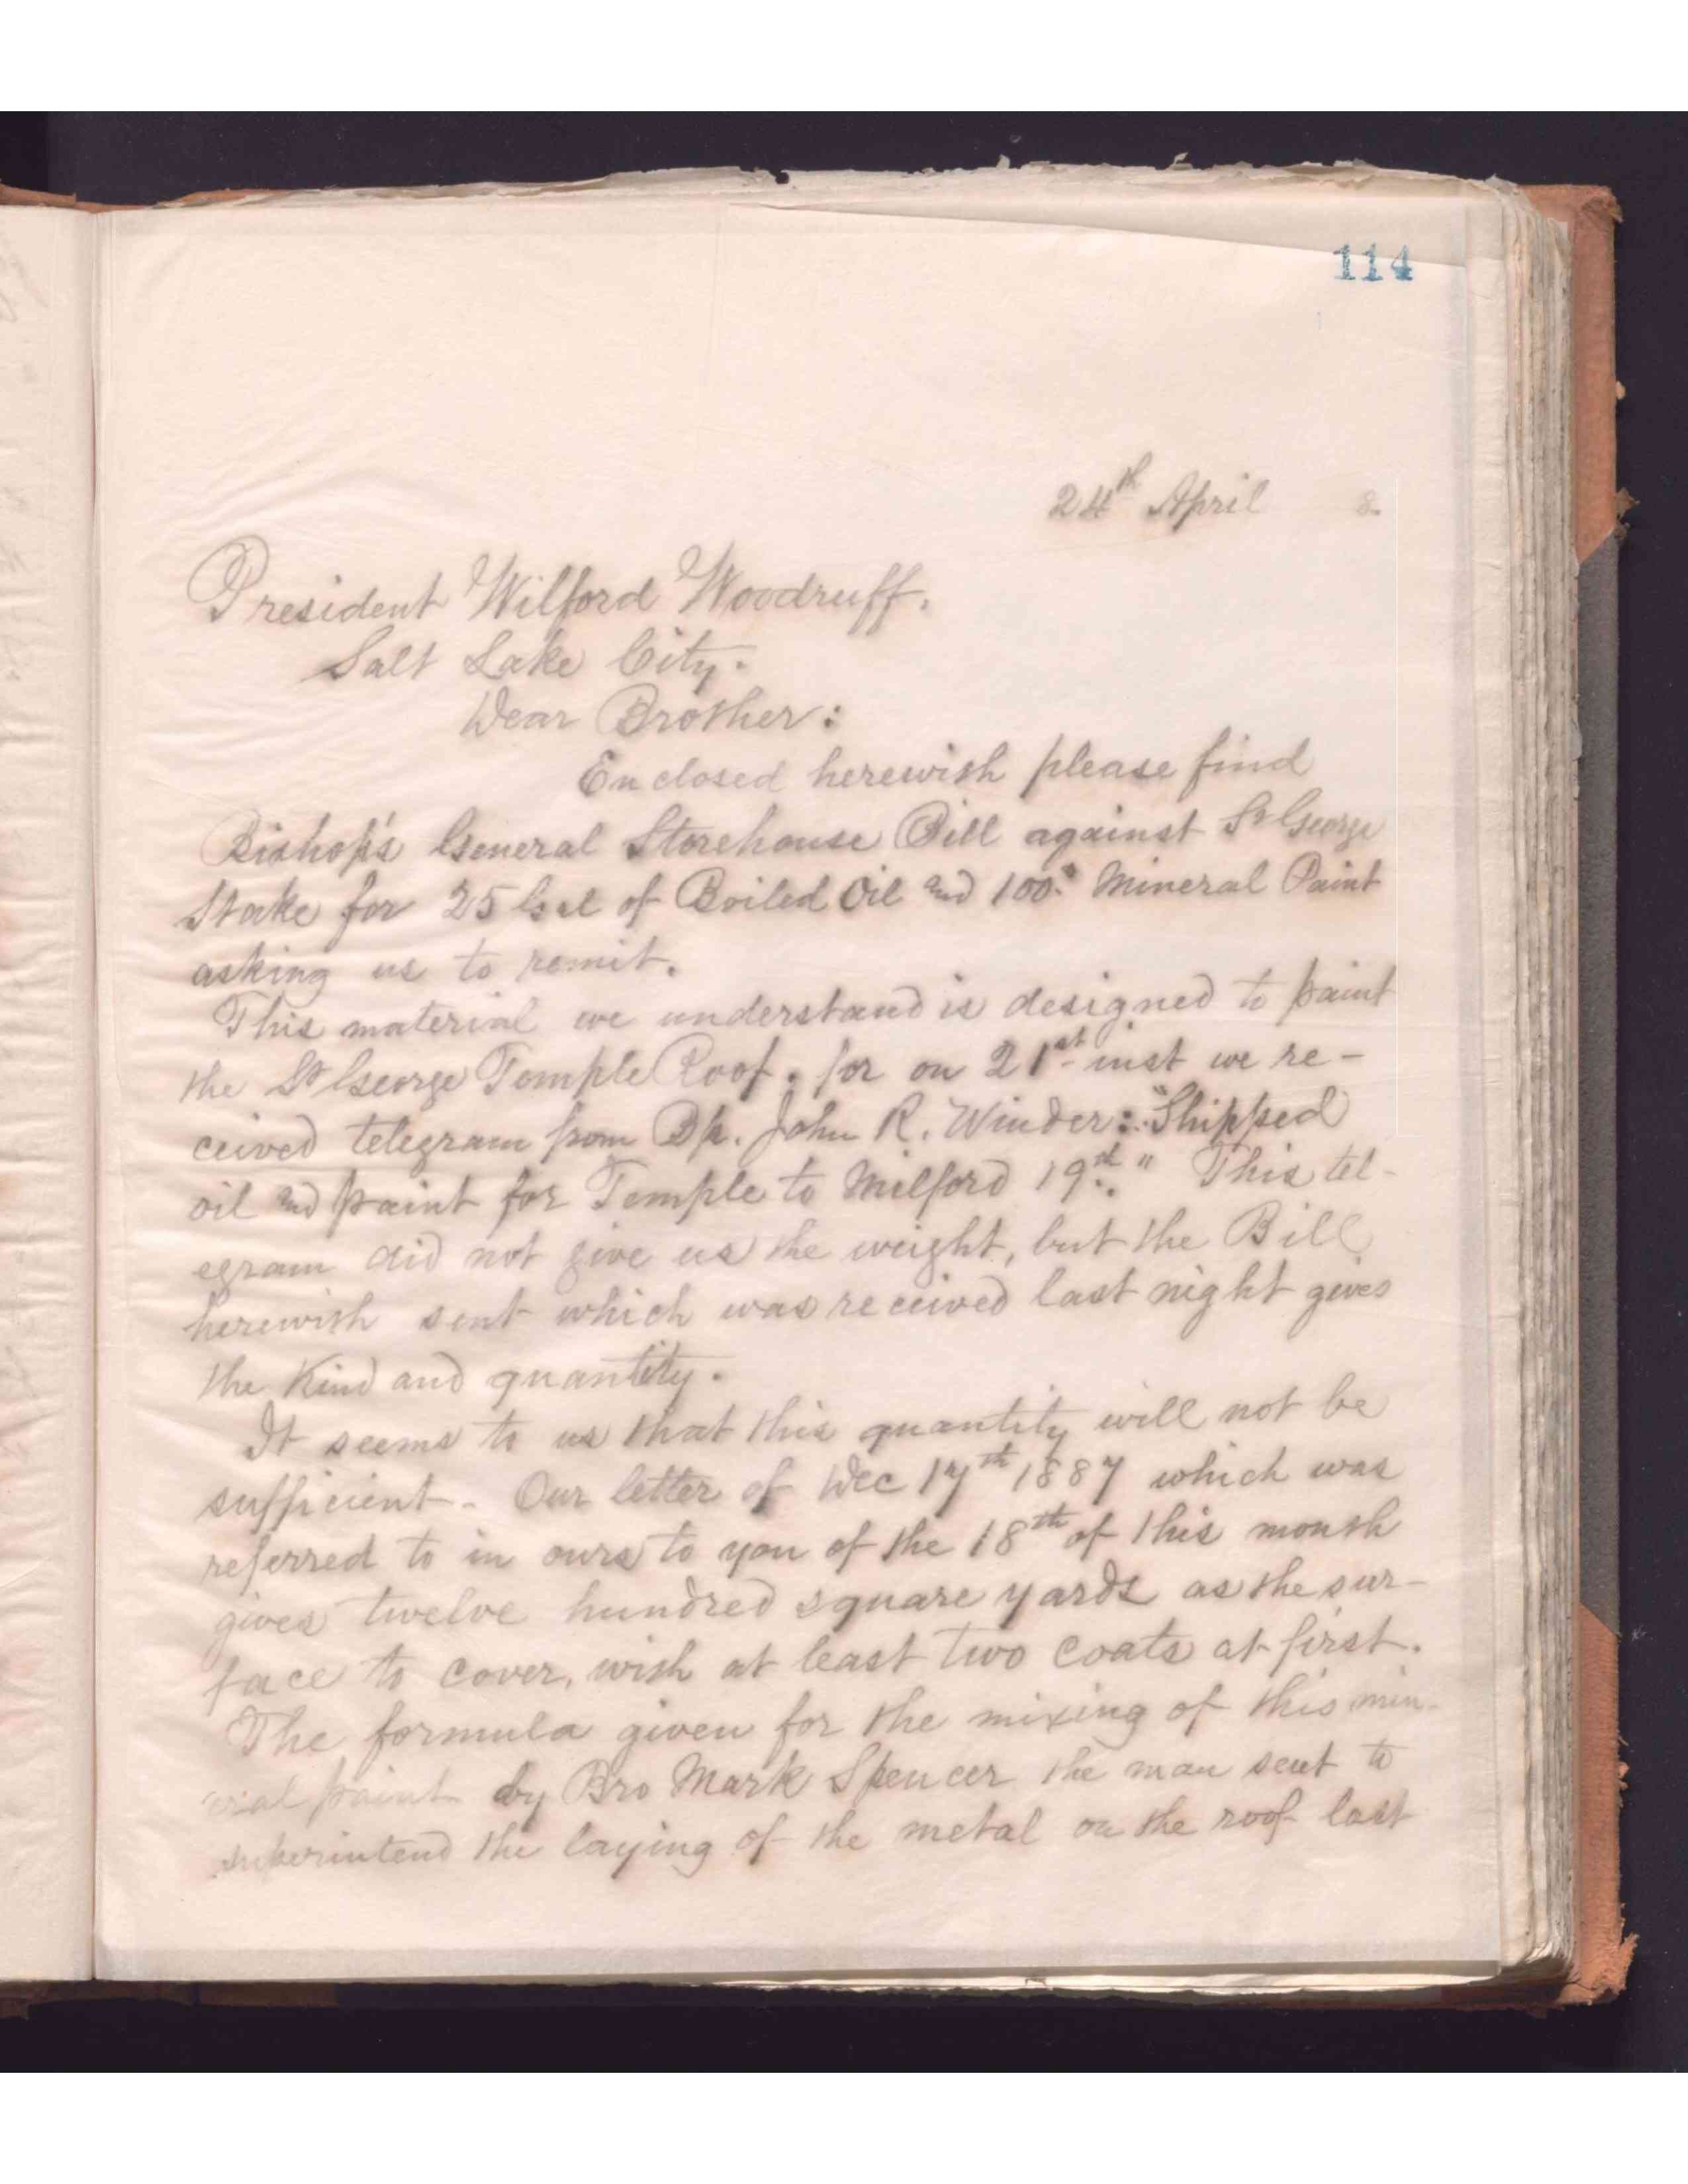 114
24th April 8
President Wilford Woodruff.
Salt Lake City.
Dear Brother:
Enclosed herewith please find
Bishop's General Storehouse Bill against St George
Stake for 25 Gal of Boiled Oil and 100# Mineral Paint
asking us to remit.
This material we understand is designed to paint
the St George Temple Roof. for on 21st inst we re-
ceived telegram from Bp. John R. Winder: "Shipped
oil and paint for Temple to Milford 19th." This tel-
egram did not give us the weight, but the Bill
herewith sent which was received last night gives
the Kind and quantity.
It seems to us that this quantity will not be
sufficient. Our letter of Dec 17th 1887 which was
referred to in ours to you of the 18th of this month
gives twelve hundred square yards as the sur-
face to cover, with at least two coats at first.
The formula given for the mixing of this min-
eral paint by Bro Mark Spencer the man sent to
superintend the laying of the metal on the roof last